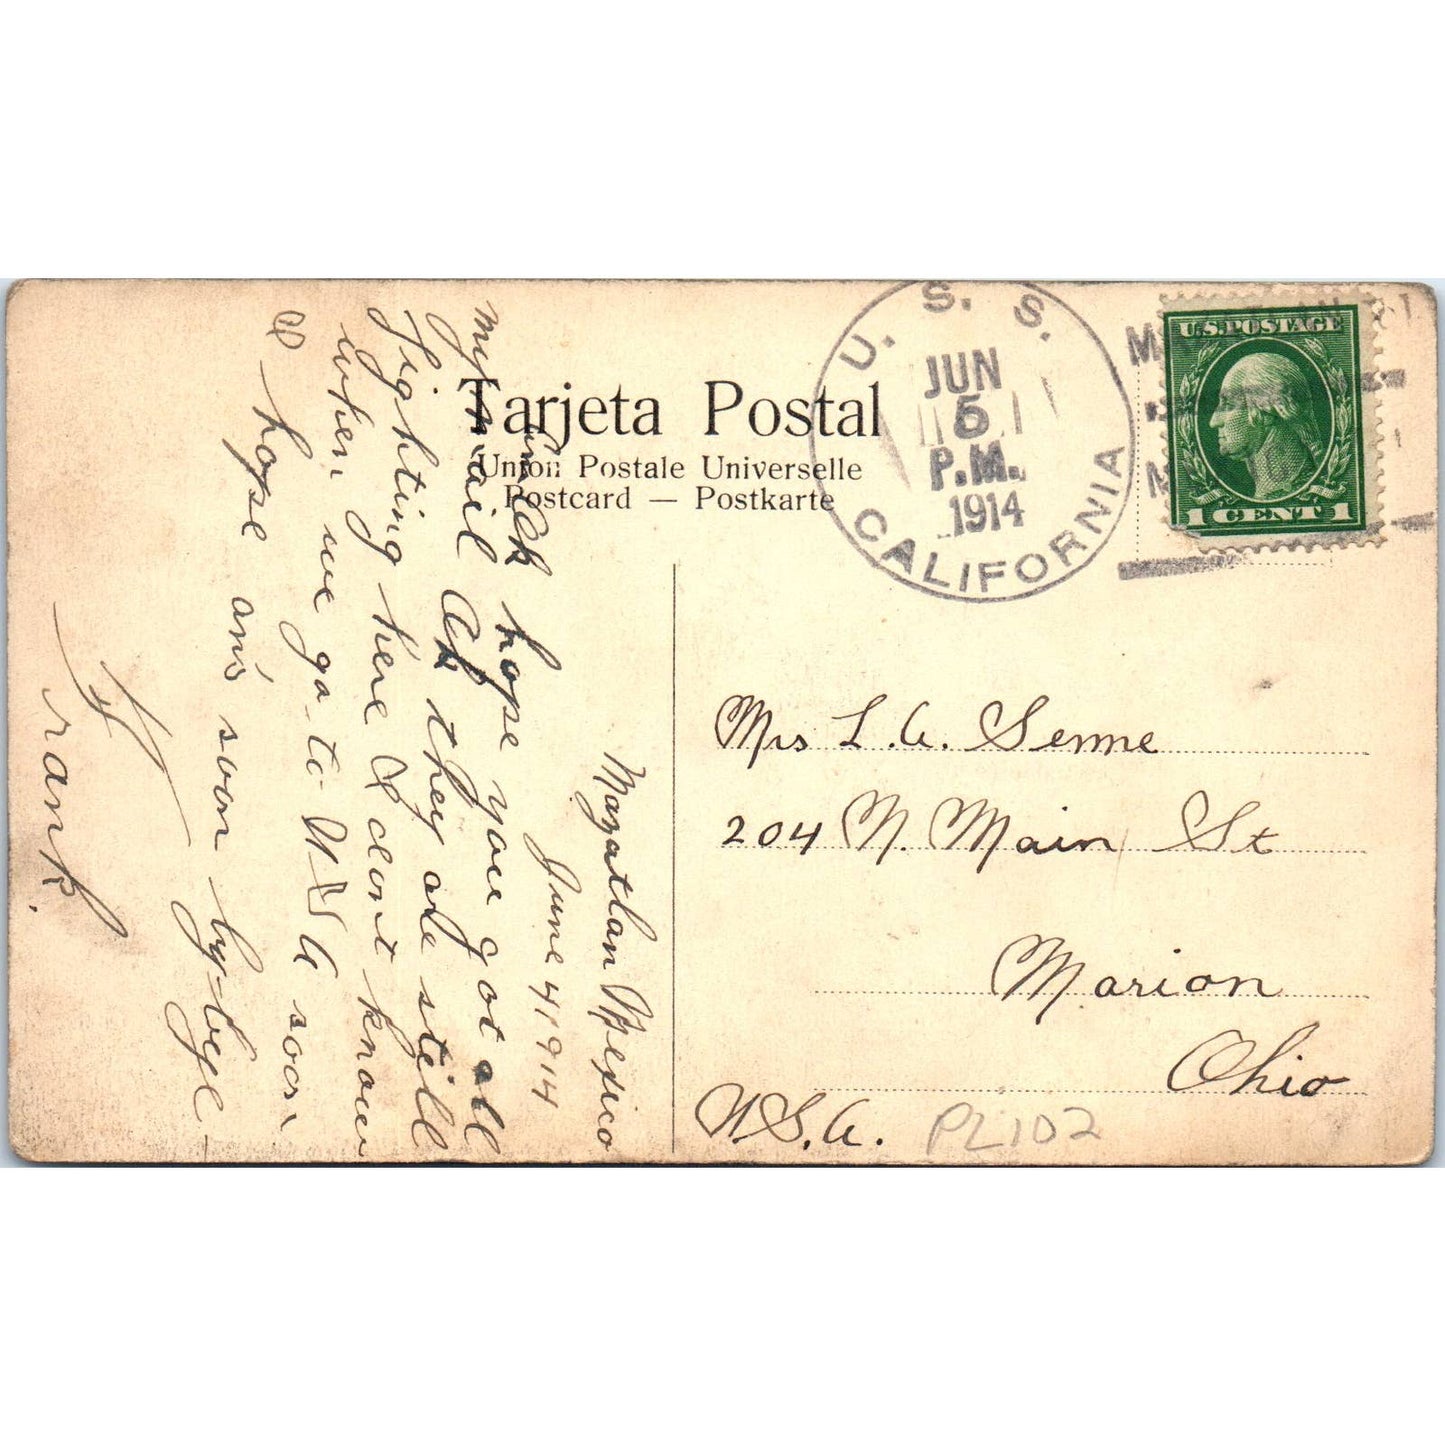 Tarjeta Postal
Union Postale Universelle
Postcard — Postkarte
U. S. S. CALIFORNIA
JUN
5
P.M.
1914
U.S. POSTAGE
1 CENT 1
Mazatlan Mexico
June 4 1914
hope you got all
my mail they are still
fighting here & dont know
when we go to U S A soon
& hope ans soon by-bye
Frank.
Mrs L. A. Senne
204 N. Main St
Marion
Ohio
U.S.A.
PL102